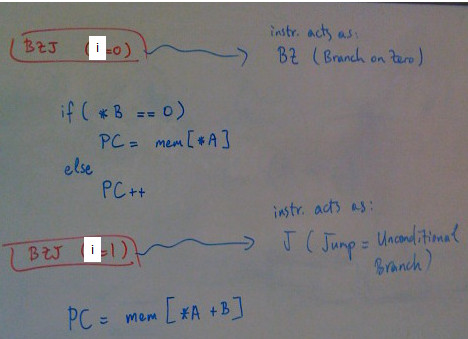 BZJ (i=0)
instr. acts as:
BZ (Branch on Zero)
if ( *B == 0)
PC = mem[*A]
else
PC++
BZJ (i=1)
instr. acts as:
J ( Jump = Unconditional
Branch)
PC = mem [*A + B]